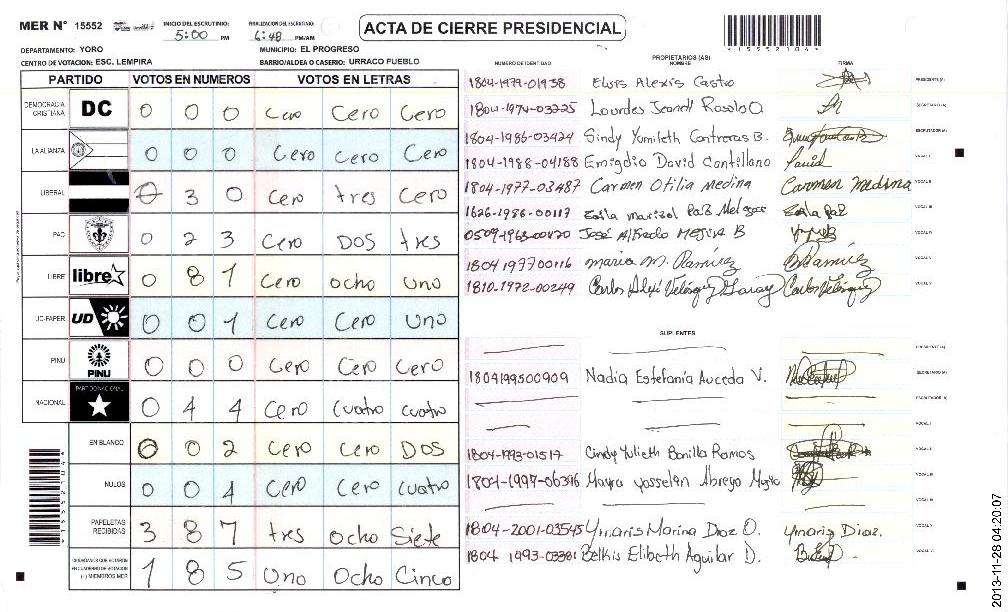 MER N° 15552
INICIO DEL ESCRUTINIO: 5:00 PM
FINALIZACION DEL ESCRUTINIO: 6:48 PM/AM
ACTA DE CIERRE PRESIDENCIAL
*15552104*
DEPARTAMENTO: YORO
MUNICIPIO: EL PROGRESO
CENTRO DE VOTACION: ESC. LEMPIRA
BARRIO/ALDEA O CASERIO: URRACO PUEBLO
PARTIDO VOTOS EN NUMEROS VOTOS EN LETRAS
DEMOCRACIA CRISTIANA DC 0 0 0 Cero Cero Cero
LA ALIANZA 0 0 0 Cero Cero Cero
LIBERAL 0 3 0 Cero tres Cero
PAC 0 2 3 Cero DOS tres
LIBRE libre 0 8 1 Cero ocho uno
UD-FAPER UD 0 0 1 Cero Cero Uno
PINU PINU 0 0 0 Cero Cero Cero
NACIONAL PARTIDO NACIONAL 0 4 4 Cero Cuatro cuatro
EN BLANCO 0 0 2 Cero Cero DOS
NULOS 0 0 4 Cero Cero cuatro
PAPELETAS RECIBIDAS 3 8 7 tres ocho Siete
CIUDADANOS QUE VOTARON EN CUADERNO DE VOTACION (+) MIEMBROS MER 1 8 5 Uno Ocho Cinco
*15552104*
PROPIETARIOS (AS)
NUMERO DE IDENTIDAD NOMBRE FIRMA
1804-1979-01938 Elvis Alexis Castro PRESIDENTE(A)
1804-1974-03225 Lourdes SECRETARIO(A)
1804-1986-03424 Sindy Yumileth Contreras B. ESCRUTADOR(A)
1804-1988-04188 Emigdio David Cantillano David VOCAL I
1804-1977-03487 Carmen Otilia Medina Carmen Medina VOCAL II
1626-1986-00117 marisol Paz VOCAL III
0509-1963-00420 José Alfredo Mejia B VOCAL IV
1804197700116 maria M. Ramirez Ramirez VOCAL V
1810-1972-00249 Carlos Alexi Velásquez Garay Carlos Velásquez
SUPLENTES
PRESIDENTE(A)
1804199500909 Nadia Estefanía Auceda V. SECRETARIO(A)
ESCRUTADOR(A)
VOCAL I
1804-1993-01517 Cindy Yulieth Bonilla Ramos VOCAL II
1804-1997-06396 Mayra Yosselin Abrego VOCAL III
1804-2001-03545 Ymaris Marina Diaz O. Ymaris Diaz.
1804 1993-03381 Belkis Elibeth Aguilar D.
2013-11-28 04:20:07